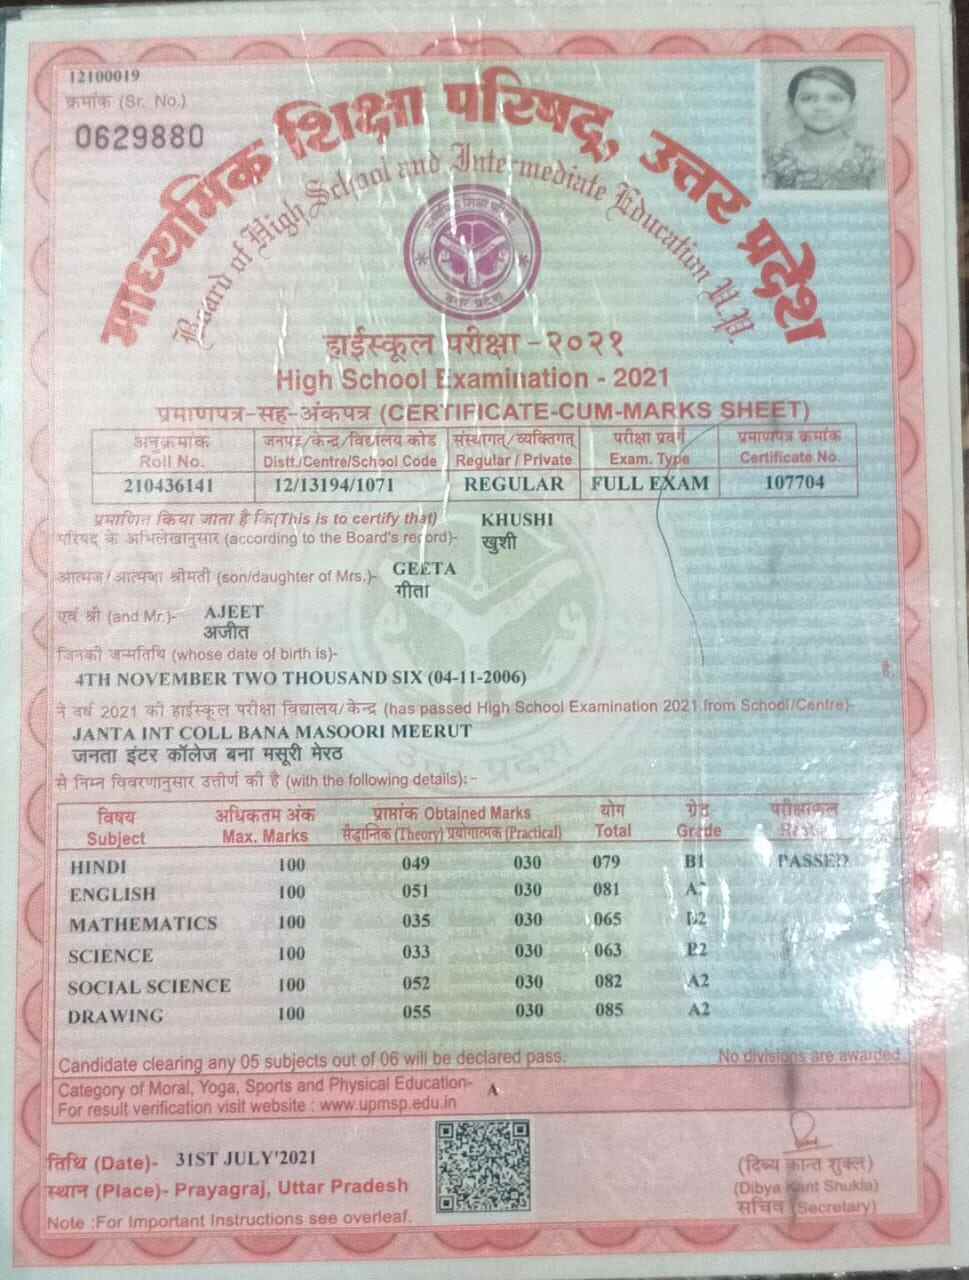 12100019
क्रमांक (Sr. No.)
0629880
माध्यमिक शिक्षा परिषद्, उत्तर प्रदेश
Board of High School and Intermediate Education U.P.
हाईस्कूल परीक्षा - २०२१
High School Examination - 2021
प्रमाणपत्र-सह-अंकपत्र (CERTIFICATE-CUM-MARKS SHEET)
अनुक्रमांक जनपद/केन्द्र/विद्यालय कोड संस्थागत/व्यक्तिगत परीक्षा प्रवर्ग प्रमाणपत्र क्रमांक
Roll No. Distt./Centre/School Code Regular / Private Exam. Type Certificate No.
210436141 12/13194/1071 REGULAR FULL EXAM 107704
प्रमाणित किया जाता है कि(This is to certify that) KHUSHI
परिषद के अभिलेखानुसार (according to the Board's record)- खुशी
आत्मज/आत्मजा श्रीमती (son/daughter of Mrs.)- GEETA
गीता
एवं श्री (and Mr.)- AJEET
अजीत
जिनकी जन्मतिथि (whose date of birth is)- है,
4TH NOVEMBER TWO THOUSAND SIX (04-11-2006)
ने वर्ष 2021 की हाईस्कूल परीक्षा विद्यालय/केन्द्र (has passed High School Examination 2021 from School/Centre)-
JANTA INT COLL BANA MASOORI MEERUT
जनता इंटर कॉलेज बना मसूरी मेरठ
से निम्न विवरणानुसार उत्तीर्ण की है (with the following details):-
विषय अधिकतम अंक प्राप्तांक Obtained Marks योग ग्रेड परीक्षाफल
Subject Max. Marks सैद्धान्तिक (Theory) प्रयोगात्मक (Practical) Total Grade
HINDI 100 049 030 079 B1 PASSED
ENGLISH 100 051 030 081
MATHEMATICS 100 035 030 065
SCIENCE 100 033 030 063
SOCIAL SCIENCE 100 052 030 082 A2
DRAWING 100 055 030 085 A2
Candidate clearing any 05 subjects out of 06 will be declared pass. No divisions are awarded
Category of Moral, Yoga, Sports and Physical Education- A
For result verification visit website : www.upmsp.edu.in
तिथि (Date)- 31ST JULY'2021
स्थान (Place)- Prayagraj, Uttar Pradesh
Note :For Important Instructions see overleaf.
(दिव्य कान्त शुक्ल)
(Dibya Kant Shukla)
सचिव (Secretary)